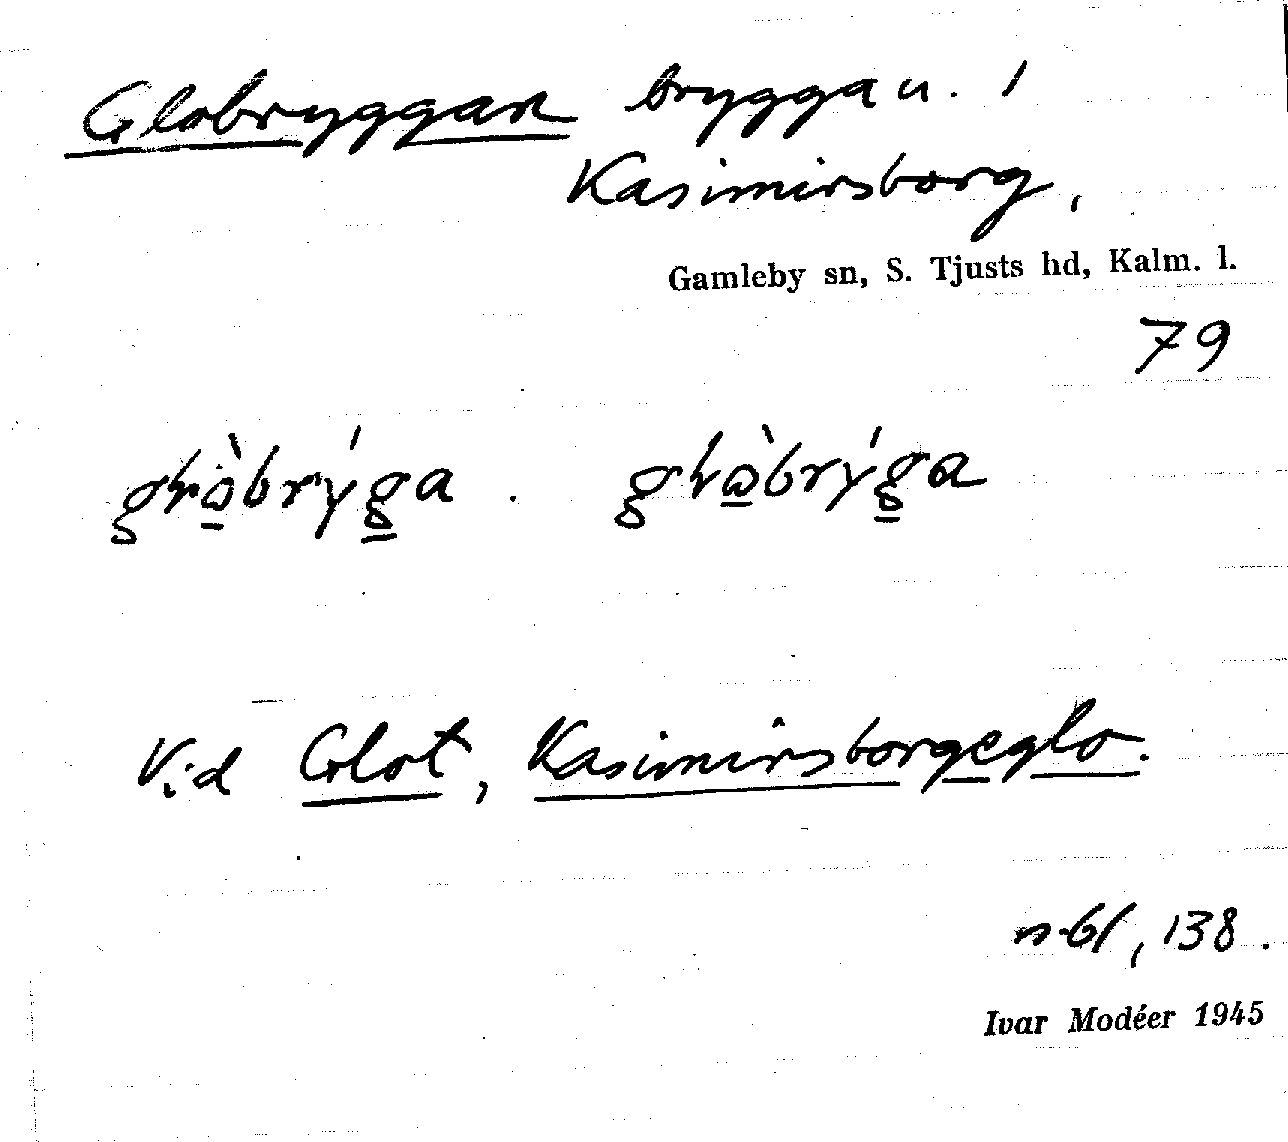 Globryggan brygga u. 1
Kasimirsborg,
Gamleby sn, S. Tjusts hd, Kalm. l.
79
Vid Glot, Kasimirsborgeglo.
138.
Ivar Modéer 1945